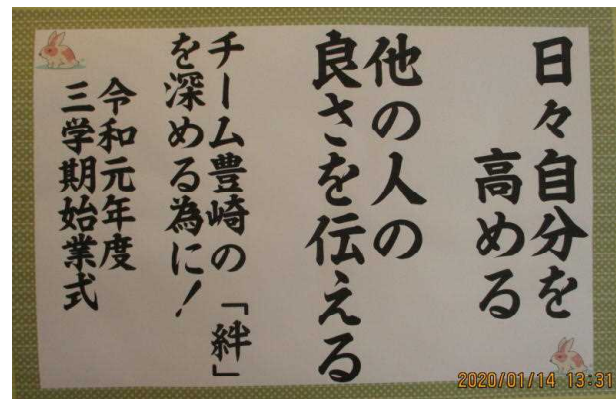 日々自分を
高める
他の人の
良さを伝える
チーム豊崎の「絆」
を深める為に！
令和元年度
三学期始業式
2020/01/14 13:31